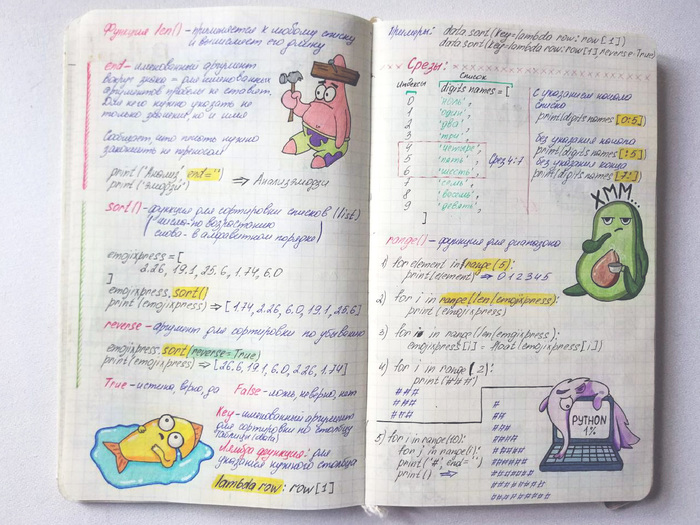 Функция len() - применяется к любому списку
и вычисляет его длину
end - именованный аргумент
вокруг знака = для именованных
аргументов пробелы не ставят.
Для него нужно указать не
только значение, но и имя
Сообщает, что печать нужно
закончить не переносом
print('Анализ', end='')
print('эмодзи') ⇒ Анализэмодзи
sort() - функция для сортировки списков (list)
(числа - по возрастанию
слова - в алфавитном порядке)
emojixpress = [
2.26, 19.1, 25.6, 1.74, 6.0
]
emojixpress.sort()
print(emojixpress) ⇒ [1.74, 2.26, 6.0, 19.1, 25.6]
reverse - аргумент для сортировки по убыванию
emojixpress.sort(reverse=True)
print(emojixpress) ⇒ [25.6, 19.1, 6.0, 2.26, 1.74]
True - истина, верно, да False - ложь, неверно, нет
Key - именованный аргумент
для сортировки по столбцу
таблицы
Лямбда функция: для
указания нужного столбца
lambda row: row[1]
Примеры: data.sort(key=lambda row: row[1])
data.sort(key=lambda row: row[1], reverse=True)
Срезы:
индексы список
digits names = [
0 'ноль',
1 'один',
2 'два',
3 'три',
4 'четыре',
5 'пять', Срез 4:7
6 'шесть',
7 'семь',
8 'восемь',
9 'девять',
]
с указанием начала
списка
print(digits names[0:5]
без указания начала
print(digits names[:5]
без указания конца
print(digits names[7:]
ХММ...
range() - функция для диапазона
1) for element in range(5):
print(element) ⇒ 0 1 2 3 4 5
2) for i in range(len(emojixpress)
print(emojixpress)
3) for i in range(len(emojixpress):
emojixpress[i] = float(emojixpress[i])
4) for i in range(2):
print('###')
###
###
###
5) for i in range(10):
for j in range(i):
print('#', end='')
print() ⇒
#
##
###
####
#####
######
#######
########
PYTHON
1%